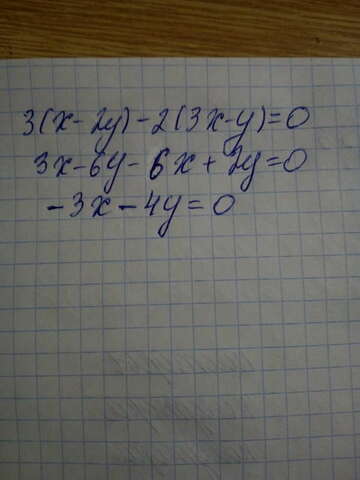 3(x-2y)-2(3x-y)=0
3x-6y-6x+2y=0
-3x-4y=0